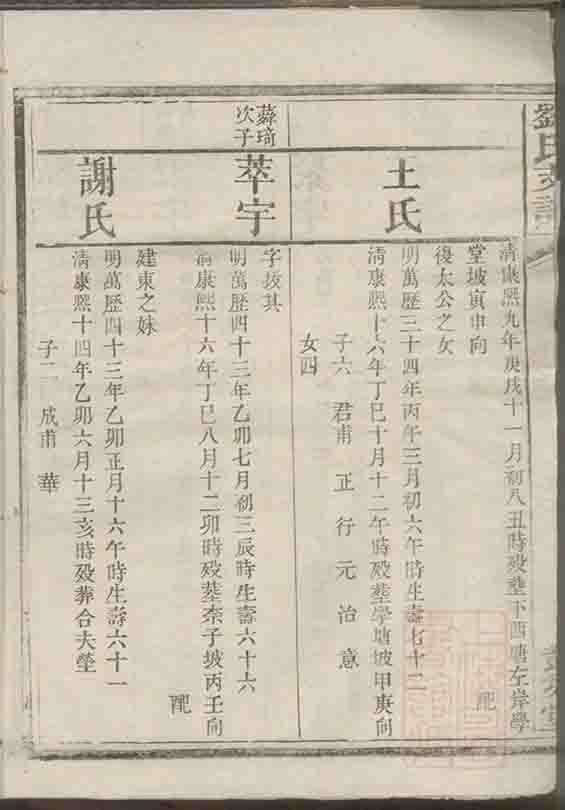 劉氏支譜
清康熙九年庚戌十一月初八丑時殁塟下酉塘左岸學
堂坡寅申向
配
土氏
復太公之女
明萬歷三十四年丙午三月初六午時生壽七十二
清康熙十六年丁巳十月十二午時殁塟學塘坡甲庚向
子六 君甫 正 行 元 治 意
女四
蕣琦
次子
萃宇
字拔其
明萬歷四十三年乙卯七月初三辰時生壽六十六
清康熙十六年丁巳八月十二卯時殁塟奈子坡丙壬向
配
謝氏
建東之妹
明萬歷四十三年乙卯正月十六午時生壽六十一
清康熙十四年乙卯六月十三亥時殁葬合夫塋
子二 成甫 華